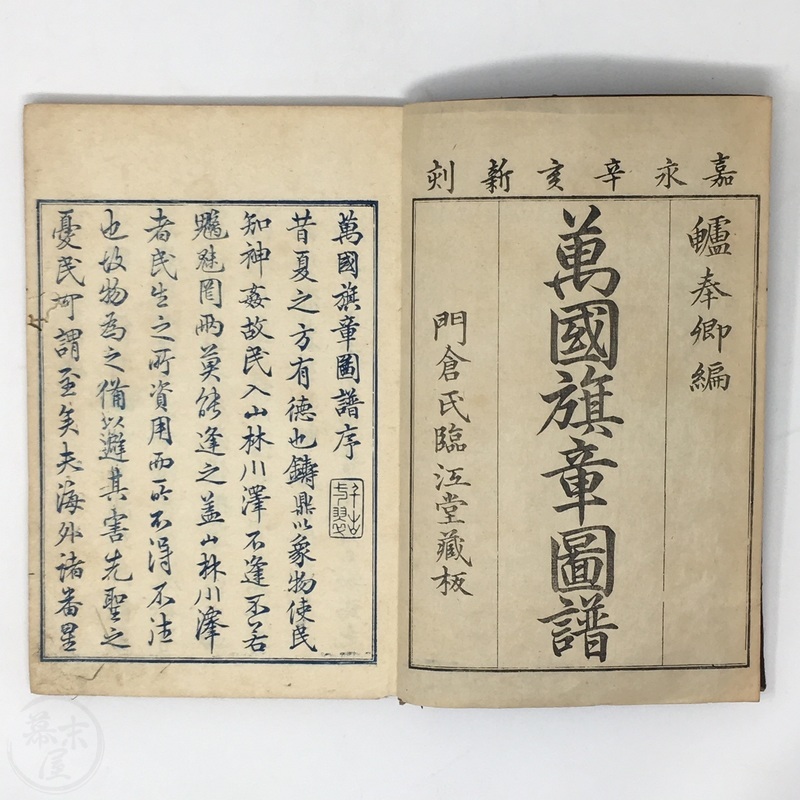 嘉永辛亥新刻
鱸奉卿編
萬國旗章圖譜
門倉氏臨江堂藏板
萬國旗章圖譜序
昔夏之方有德也鑄鼎以象物使民
知神姦故民入山林川澤不逢不若
魑魅罔兩莫能逢之盖山林川澤
者民生之所資用而所不得不往
也故物為之備以避其害先聖之
憂民可謂至矣夫海外諸番星
幕末屋